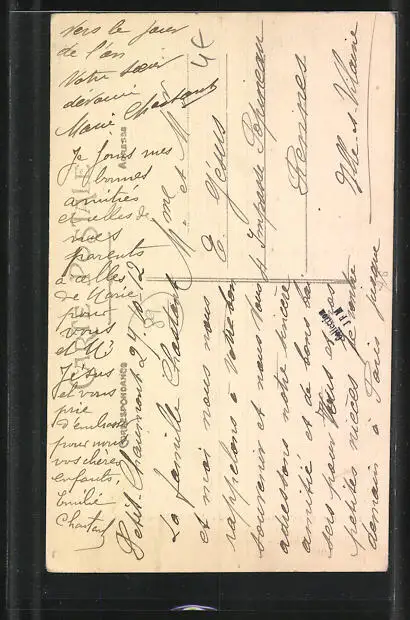 CARTE POSTALE
CORRESPONDANCE
Adresse
Petit-Chaumont 24
La famille Chartant
et moi nous nous
rappelons à votre bon
souvenir et nous vous
adressons notre sincère
amitié et de bons
pour vous et vos
petites nièces je rentre
demain à Paris jusque
vers le jour
de l'an
Votre sœur
dévouée
Marie Chartant
Je joins mes
bonnes
amitiés
et celles de
mes
parents
à celles
de Marie
pour
vous
et Mr
Jésus
et vous
prie
d'embrasser
pour nous
vos chères
enfants.
Émilie
Chartant
Mme et M
E Jésus
4 Impasse
Rennes
Ille et Vilaine
4€
Collection
J F M